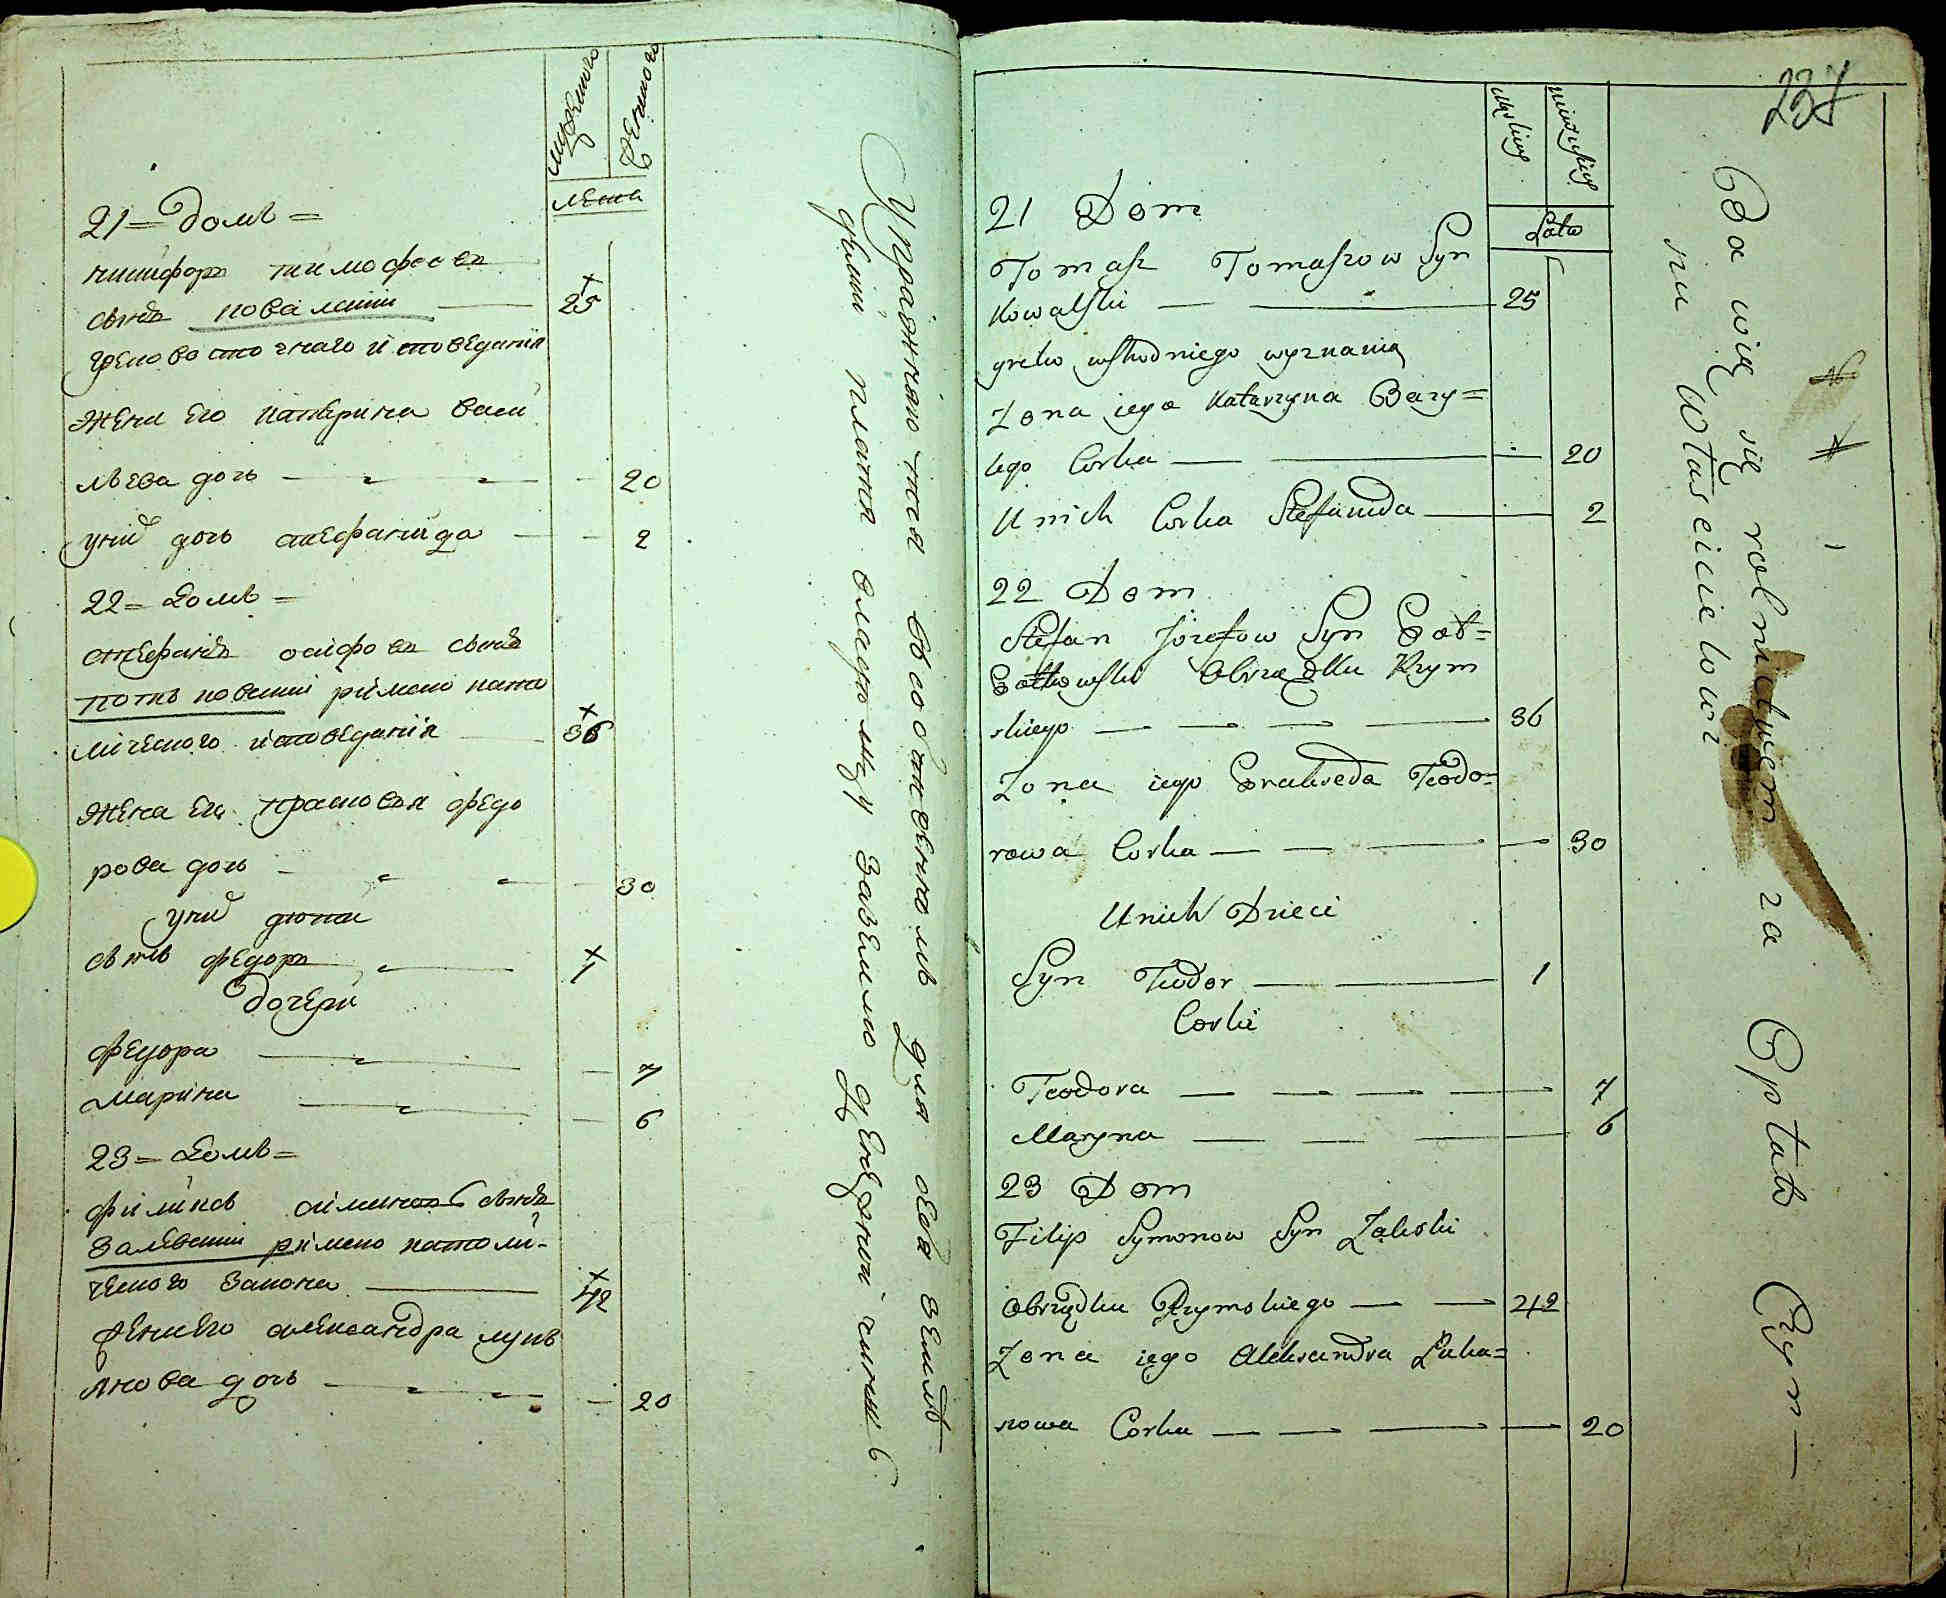 мужескаго
женскаго
лета
21 = Домъ =
никифоръ тимофеевъ
сынъ ковалский 25
греко восточнаго исповеданія
жена его катерина васи
льева дочь 20
у них дочь стефанида 2
22 = Домъ =
стефанъ осифовъ сынъ
римско като
лическаго исповеданія 36
жена его прасковья федо
рова дочь 30
у них дети
сынъ федоръ 1
дочери
федора 7
марина 6
23 = Домъ =
филипъ симоновъ сынъ
залевский римско католи-
ческого закона 42
жена его александра лукъ
янова дочь 20
Упражняются въ собственномъ для себя земле
делии платя владелцу за землю денежный чиншъ
237
męskiey
żenskiey
Lata
21 Dom
Tomasz Tomaszow Syn
Kowalski 25
greko wschodniego wyznania
Zona iego Katarzyna Bazy=
lego Corka 20
U nich Corka Stefanida 2
22 Dom
Stefan Józefow Syn
Obrządku Rzym
skiego 36
Zona iego Prakseda Teodo=
rowa Corka 30
U nich Dzieci
Syn Teodor 1
Corki
Teodora 7
Maryna 6
23 Dom
Filip Symonow Syn Zaleski
Obrządku Rzymskiego 42
Zona iego Aleksandra Luka=
nowa Corka 20
Bawią się rolnictwem za Opłatą Czyn—
szu Właścicielowi